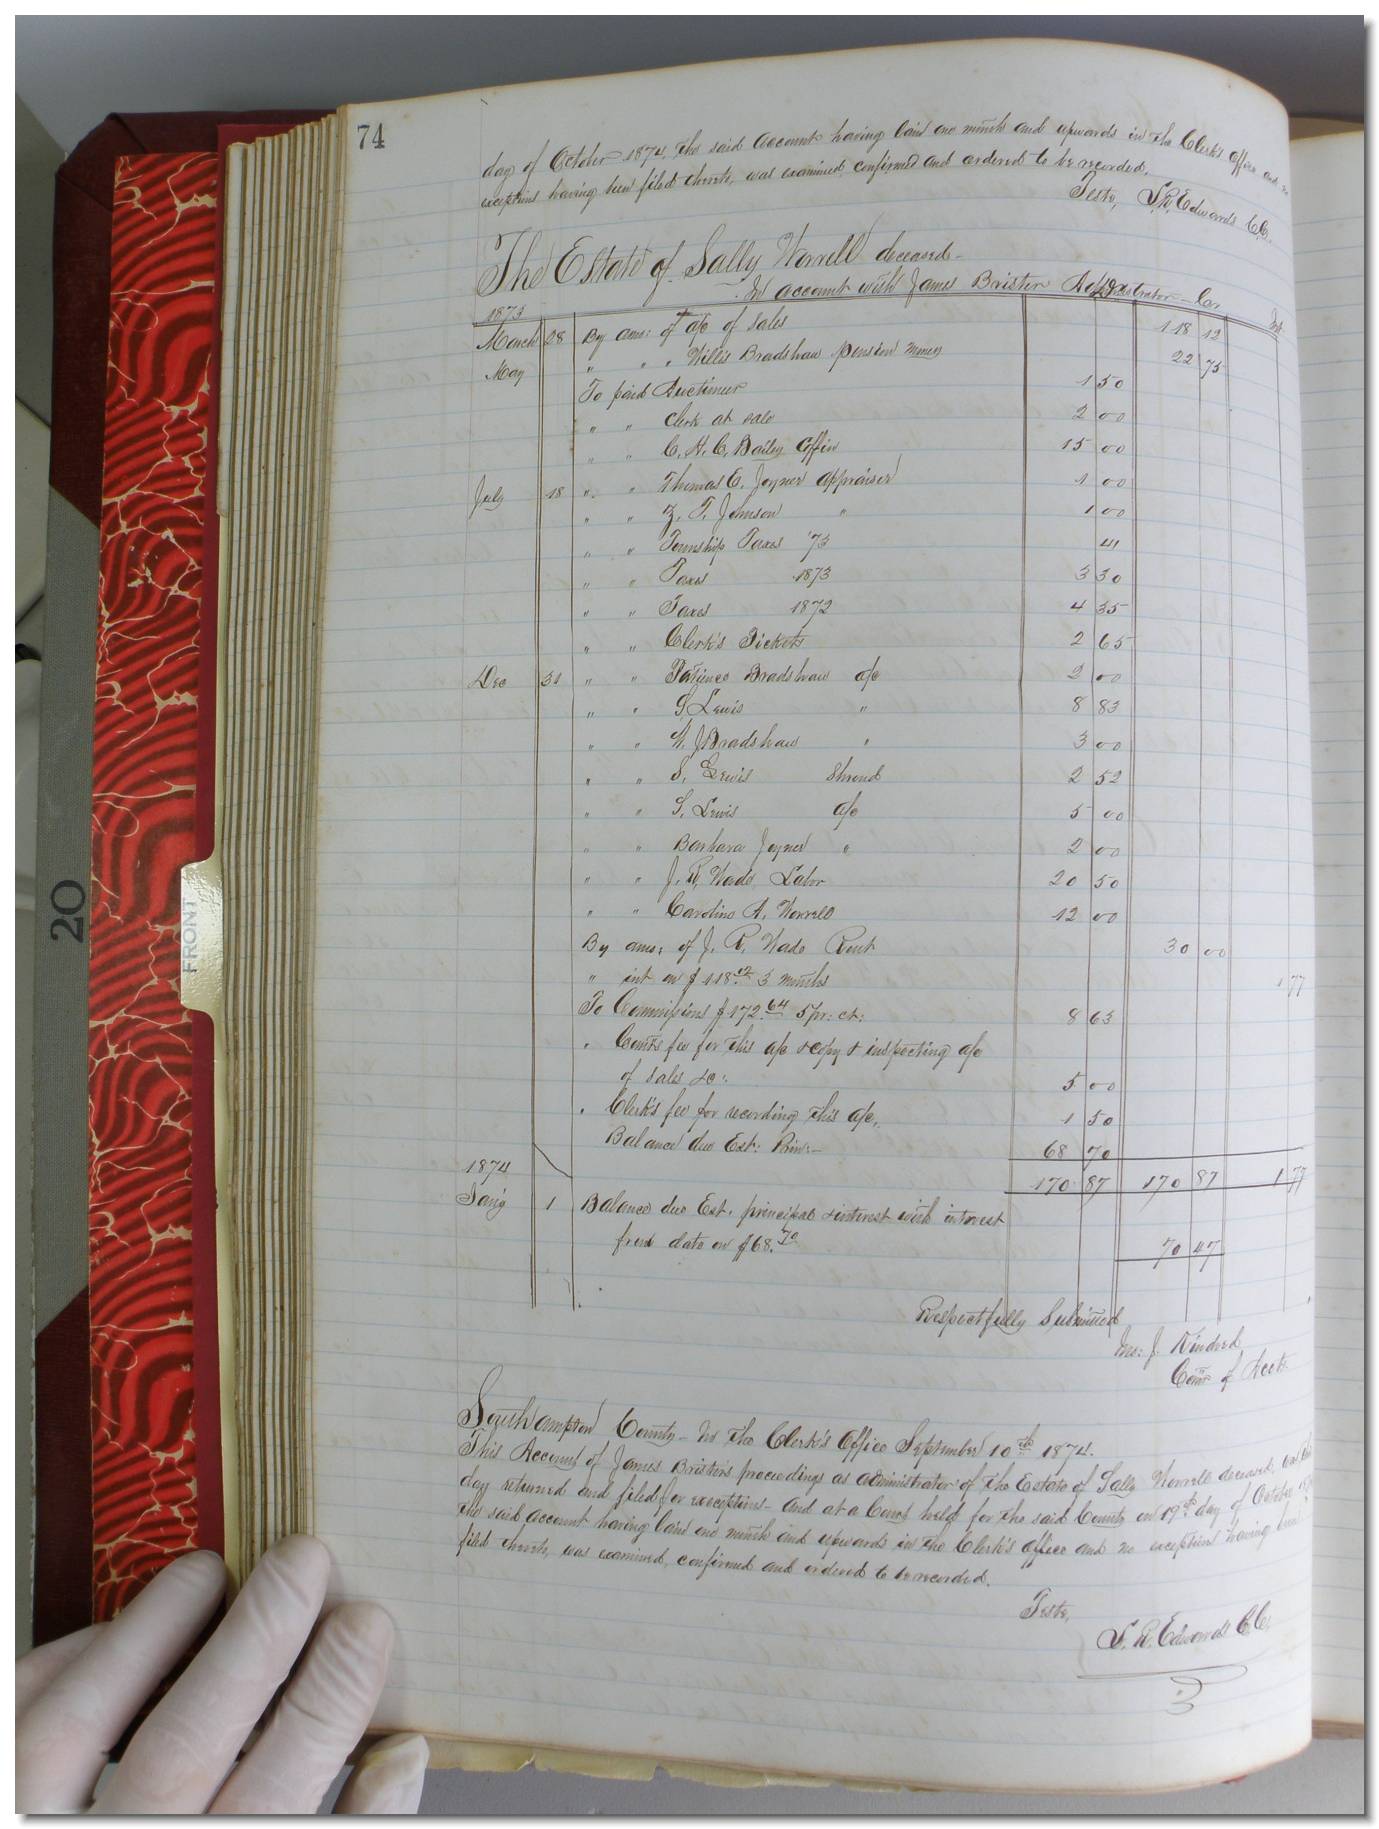 74
day of October 1874. The said Account having laid one month and upwards in the Clerk's office and no
exceptions having been filed thereto, was examined confirmed and ordered to be recorded.
Teste, S.R. Edwards C.C.
The Estate of Sally Worrell deceased
In account with James Brister Administrator Cr
1873 Int
March 28 By amo: of a/c of Sales 118 12
May " " " Willis Bradshaw pension money 22 75
To paid Auctioneer 1 50
" " Clerk at sale 2 00
" " C. H. C. Bailey Coffin 15 00
July 18 " " Thomas E. Joyner appraiser 1 00
" " Z. T. Johnson " 1 00
" " Township Taxes '73 41
" " Taxes 1873 3 30
" " Taxes 1872 4 35
" " Clerk's Tickets 2 65
Dec 31 " " Patience Bradshaw a/c 2 00
" " S Lewis " 8 83
" " W. J Bradshaw " 3 00
" " S. Lewis Shroud 2 52
" " S. Lewis a/c 5 00
" " Barbara Joyner " 2 00
" " J. R. Wade Labor 20 50
" " Caroline A. Worrell 12 00
By amo: of J. R. Wade Rent 30 00
" int on $118.12 3 months 1 77
To Commissions $172.64 5 pr: ct: 8 63
" Comrs fee for this a/c & copy & inspecting a/c
of sales &c: 5 00
" Clerk's fee for recording this a/c. 1 50
Balance due Est: Prin:— 68 70
1874 170 87 170 87 1 77
Jan'y 1 Balance due Est. principal & interest with interest
from date on $68.70 70 47
Respectfully Submitted
Jno: J. Kindred
Comr of Accts
Southampton County - In the Clerk's Office September 10th 1874.
This Account of James Brister's proceedings as administrator of the Estate of Sally Worrell deceased, was this
day returned and filed for exceptions - And at a Court held for the said County on 19th day of October
the said account having laid one month and upwards in the Clerk's office and no exceptions having been
filed thereto, was examined, confirmed and ordered to be recorded.
Teste,
S. R. Edwards C.C.
20
FRONT